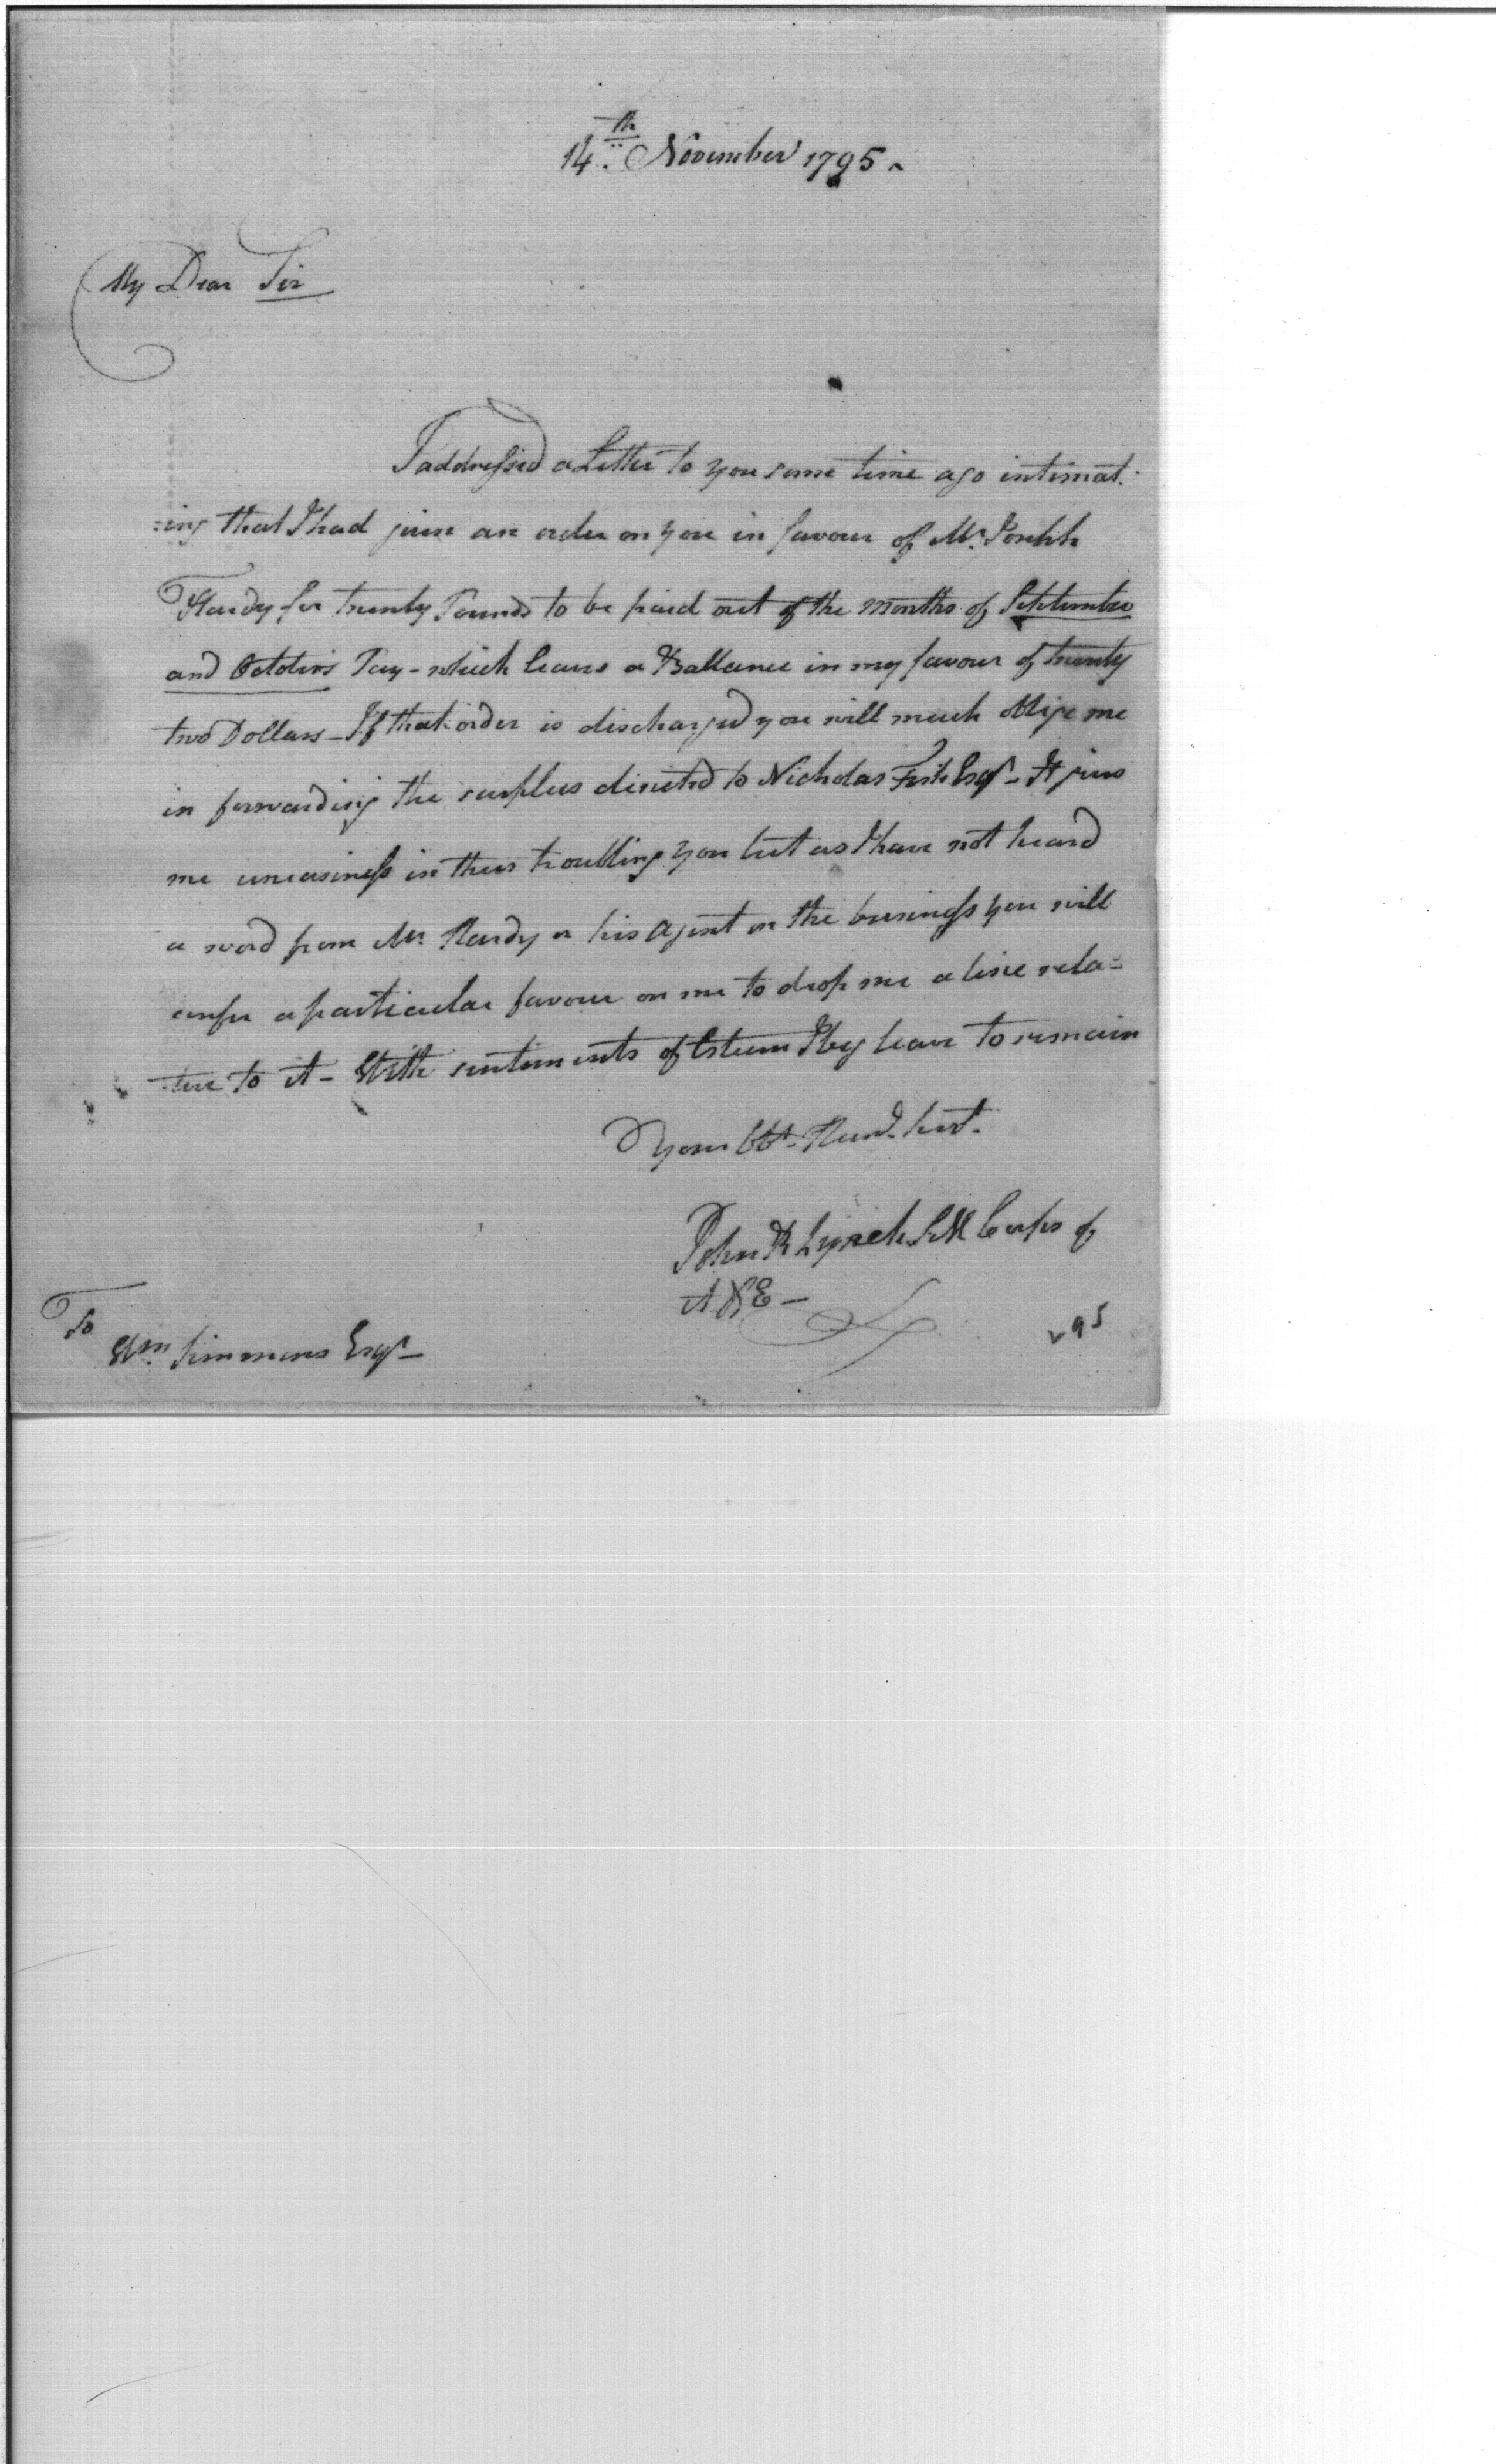 14th. November 1795
My Dear Sir
I addressed a Letter to you some time ago intimat-
=ing that I had given an order on you in favour of Mr. Joseph
Hardy for twenty Pounds to be paid out of the months of September
and October's Pay - which leaves a Ballance in my favour of twenty
two Dollars - If that order is discharged you will much oblige me
in forwarding the surplus directed to Nicholas Fish Esqr - It gives
me uneasiness in thus troubling you but as I have not heard
a word from Mr. Hardy or his Agent on the business you will
confer a particular favour on me to drop me a line rela=
tive to it - With sentiments of Esteem I beg leave to remain
your Obt. Humd. Servt.
John R Lynch S M Corps of
A & E -
To
Wm. Simmons Esqr -